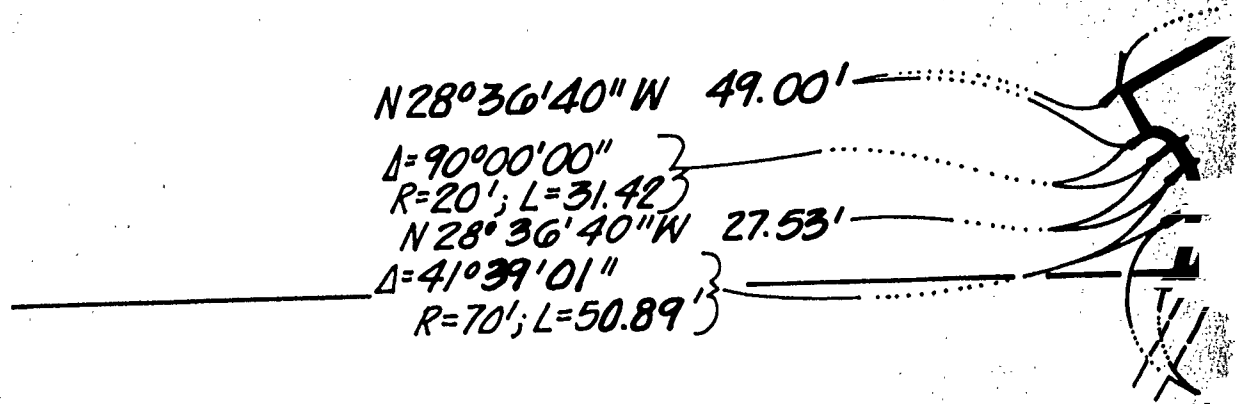 N28°36'40"W 49.00'
Δ=90°00'00"
R=20'; L=31.42
N28°36'40"W 27.53'
Δ=41°39'01"
R=70'; L=50.89'